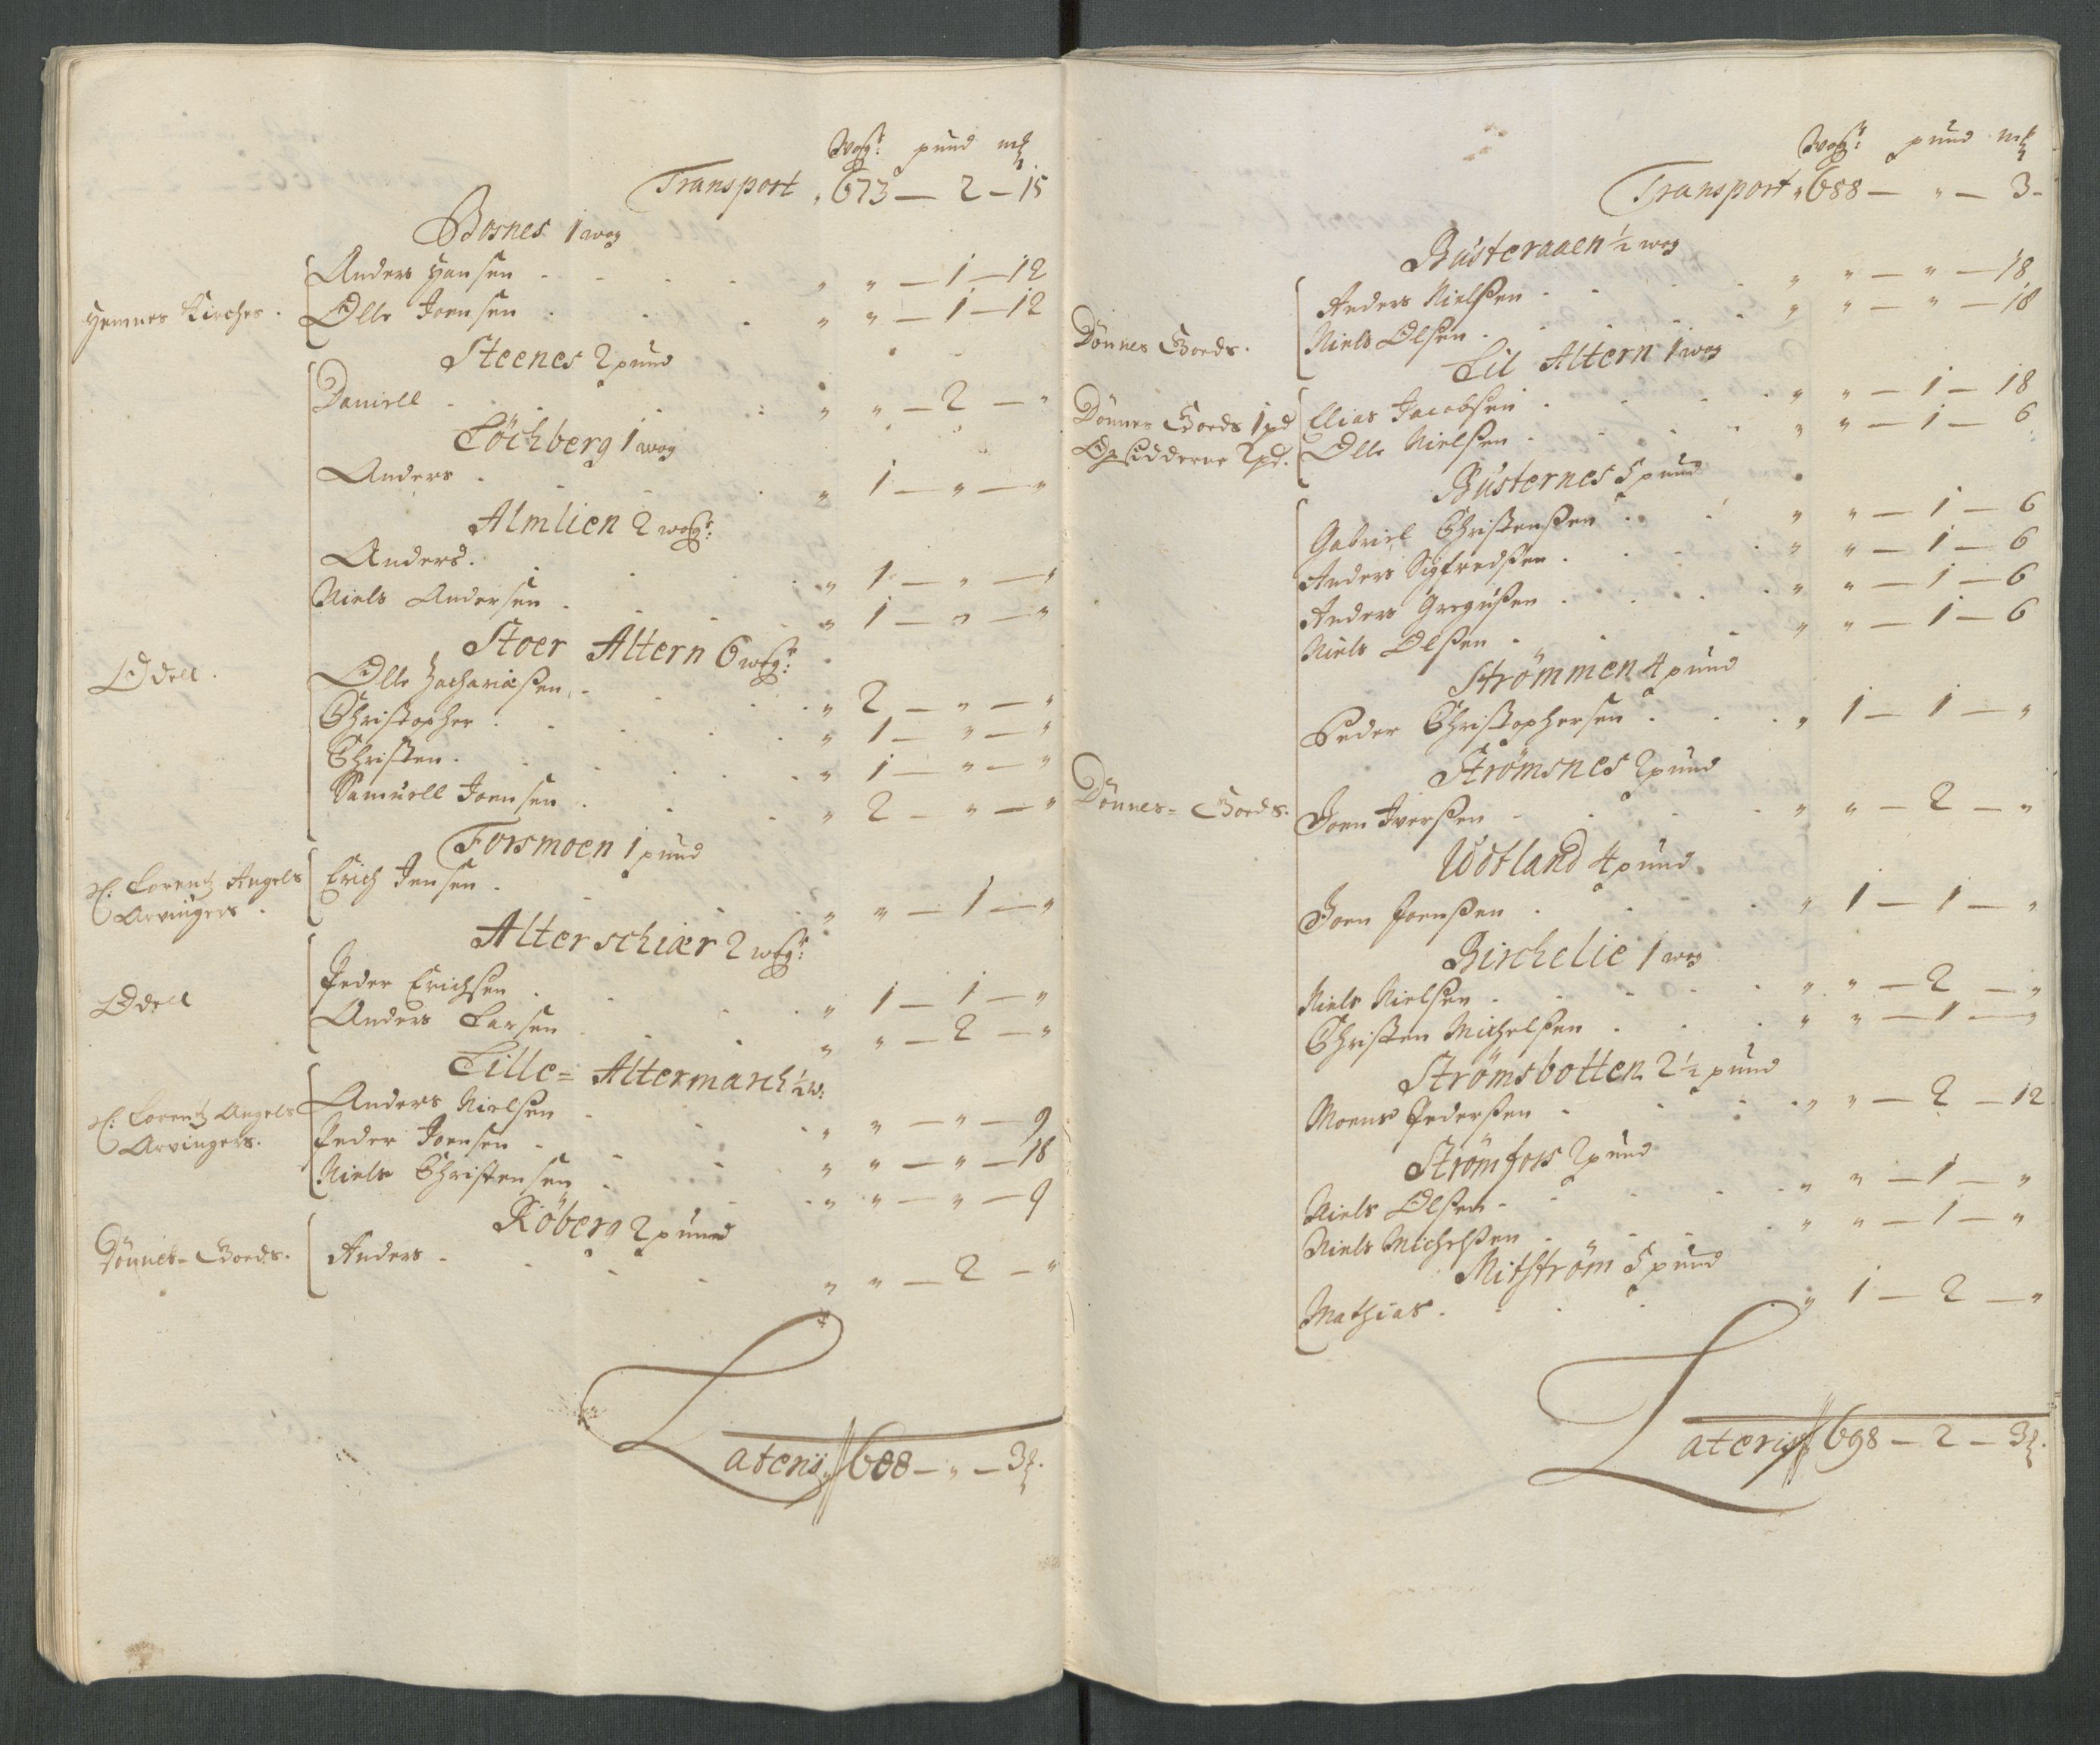 Wogr: pund mk
Transport „ 673 — 2 — 15
Bosnes 1 wog
Hemnes Kirches.
Anders Hansen . . . „ „ — 1 — 12
Olle Joensen . . . „ „ — 1 — 12
Steenes 2 pund
Daniell . . . „ „ — 2 — „
Löchberg 1 wog
Anders . . . „ 1 — „ — „
Almlien 2 wogr:
Anders . . . „ 1 — „ — „
Niels Andersen . . . „ 1 — „ — „
Stoer Altern 6 wogr:
Odell.
Olle Zachariæsen . . . „ 2 — „ — „
Christopher . . . „ 1 — „ — „
Christen . . . „ 1 — „ — „
Samuell Joensen . . . „ 2 — „ — „
Forsmoen 1 pund
H: Lorentz Angels
Arvingers.
Erich Jensen . . . „ „ — 1 — „
Alterschiær 2 wogr:
Odell
Peder Erichsen . . . „ 1 — 1 — „
Anders Larsen . . . „ „ — 2 — „
Lille= Altermarch ½ w:
H: Lorentz Angels
Arvingers.
Anders Nielsen . . . „ „ — „ — 9
Peder Joensen . . . „ „ — „ — 18
Niels Christensen . . . „ „ — „ — 9
Röberg 2 pund
Dönnes= Goeds.
Anders . . . „ „ — 2 — „
Lateris 688 — „ — 3
Wogr: pund mk
Transport „ 688 — „ — 3 -
Busteraaen ½ wog
Dönnes Goeds.
Anders Nielßen . . . „ „ — „ — 18
Niels Olsen . . . „ „ — „ — 18
Lil Altern 1 wog
Dönnes Goeds 1 pd
Opsidderne 2 pd.
Elias Jacobsen . . . „ „ — 1 — 18
Olle Nielsen . . . „ „ — 1 — 6
Busternes 5 pund
Gabriel Christenßen . . . „ „ — 1 — 6
Anders Sigfredßen . . . „ „ — 1 — 6
Anders Gregußen . . . „ „ — 1 — 6
Niels Olßen . . . „ „ — 1 — 6
Strömmen 4 pund
Peder Christophersen . . . „ 1 — 1 — „
Strömsnes 2 pund
Dönnes= Goeds.
Joen Iverßen . . . „ „ — 2 — „
Wotland 4 pund
Joen Joenßen . . . „ 1 — 1 — „
Birchelie 1 wog
Niels Nielsen . . . „ „ — 2 — „
Christen Michelßen . . . „ „ — 1 — „
Strömsbotten 2½ pund
Moens Pederßen . . . „ „ — 2 — 12
Strömfors 2 pund
Niels Olßen . . . „ „ — 1 — „
Niels Michelßen . . . „ „ — 1 — „
Mitström 5 pund
Mathias . . . „ 1 — 2 — „
Lateris 698 — 2 — 3